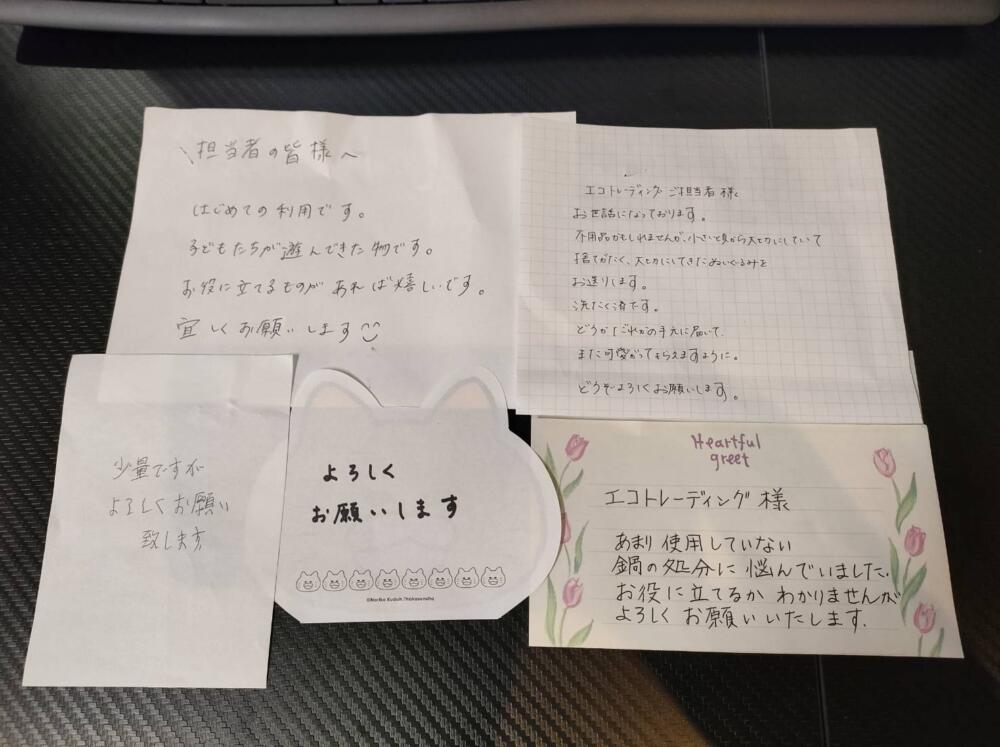 \担当者の皆様へ
はじめての利用です。
子どもたちが遊んできた物です。
お役に立てるものがあれば嬉しいです。
宜しくお願いします
エコトレーディングご担当者様
お世話になっております。
不用品かもしれませんが、小さい頃から大切にしていて
捨てがたく、大切にしてきたぬいぐるみを
お送りします。
洗たく済です。
どうかだれかの手元に届いて、
また可愛がってもらえますように。
どうぞよろしくお願いします。
少量ですが
よろしくお願い
致します
よろしく
お願いします
©Noriko Kudoh /Hakusensha
Heartful
greet
エコトレーディング様
あまり使用していない
鍋の処分に悩んでいました.
お役に立てるかわかりませんが
よろしくお願いいたします.